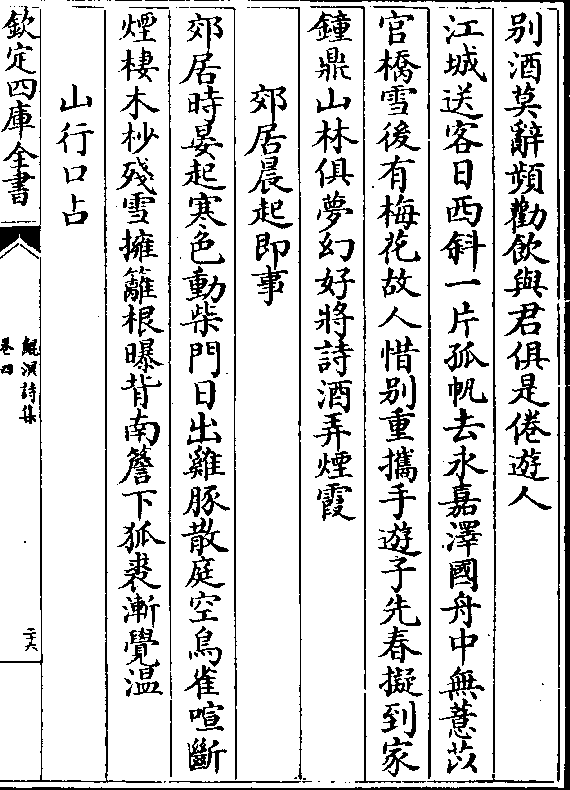 别酒莫辭頻勸飲與君俱是倦遊人
江城送客日西斜一片孤帆去永嘉澤國舟中無薏苡
官橋雪後有梅花故人惜别重攜手遊子先春擬到家
鐘鼎山林俱夢幻好將詩酒弄煙霞
郊居晨起即事
郊居時晏起寒色動柴門日出雞豚散庭空鳥雀喧斷
煙棲木杪殘雪擁籬根曝背南簷下狐裘漸覺温
山行口占
欽定四庫全書
鯤溟詩集
卷四
二六